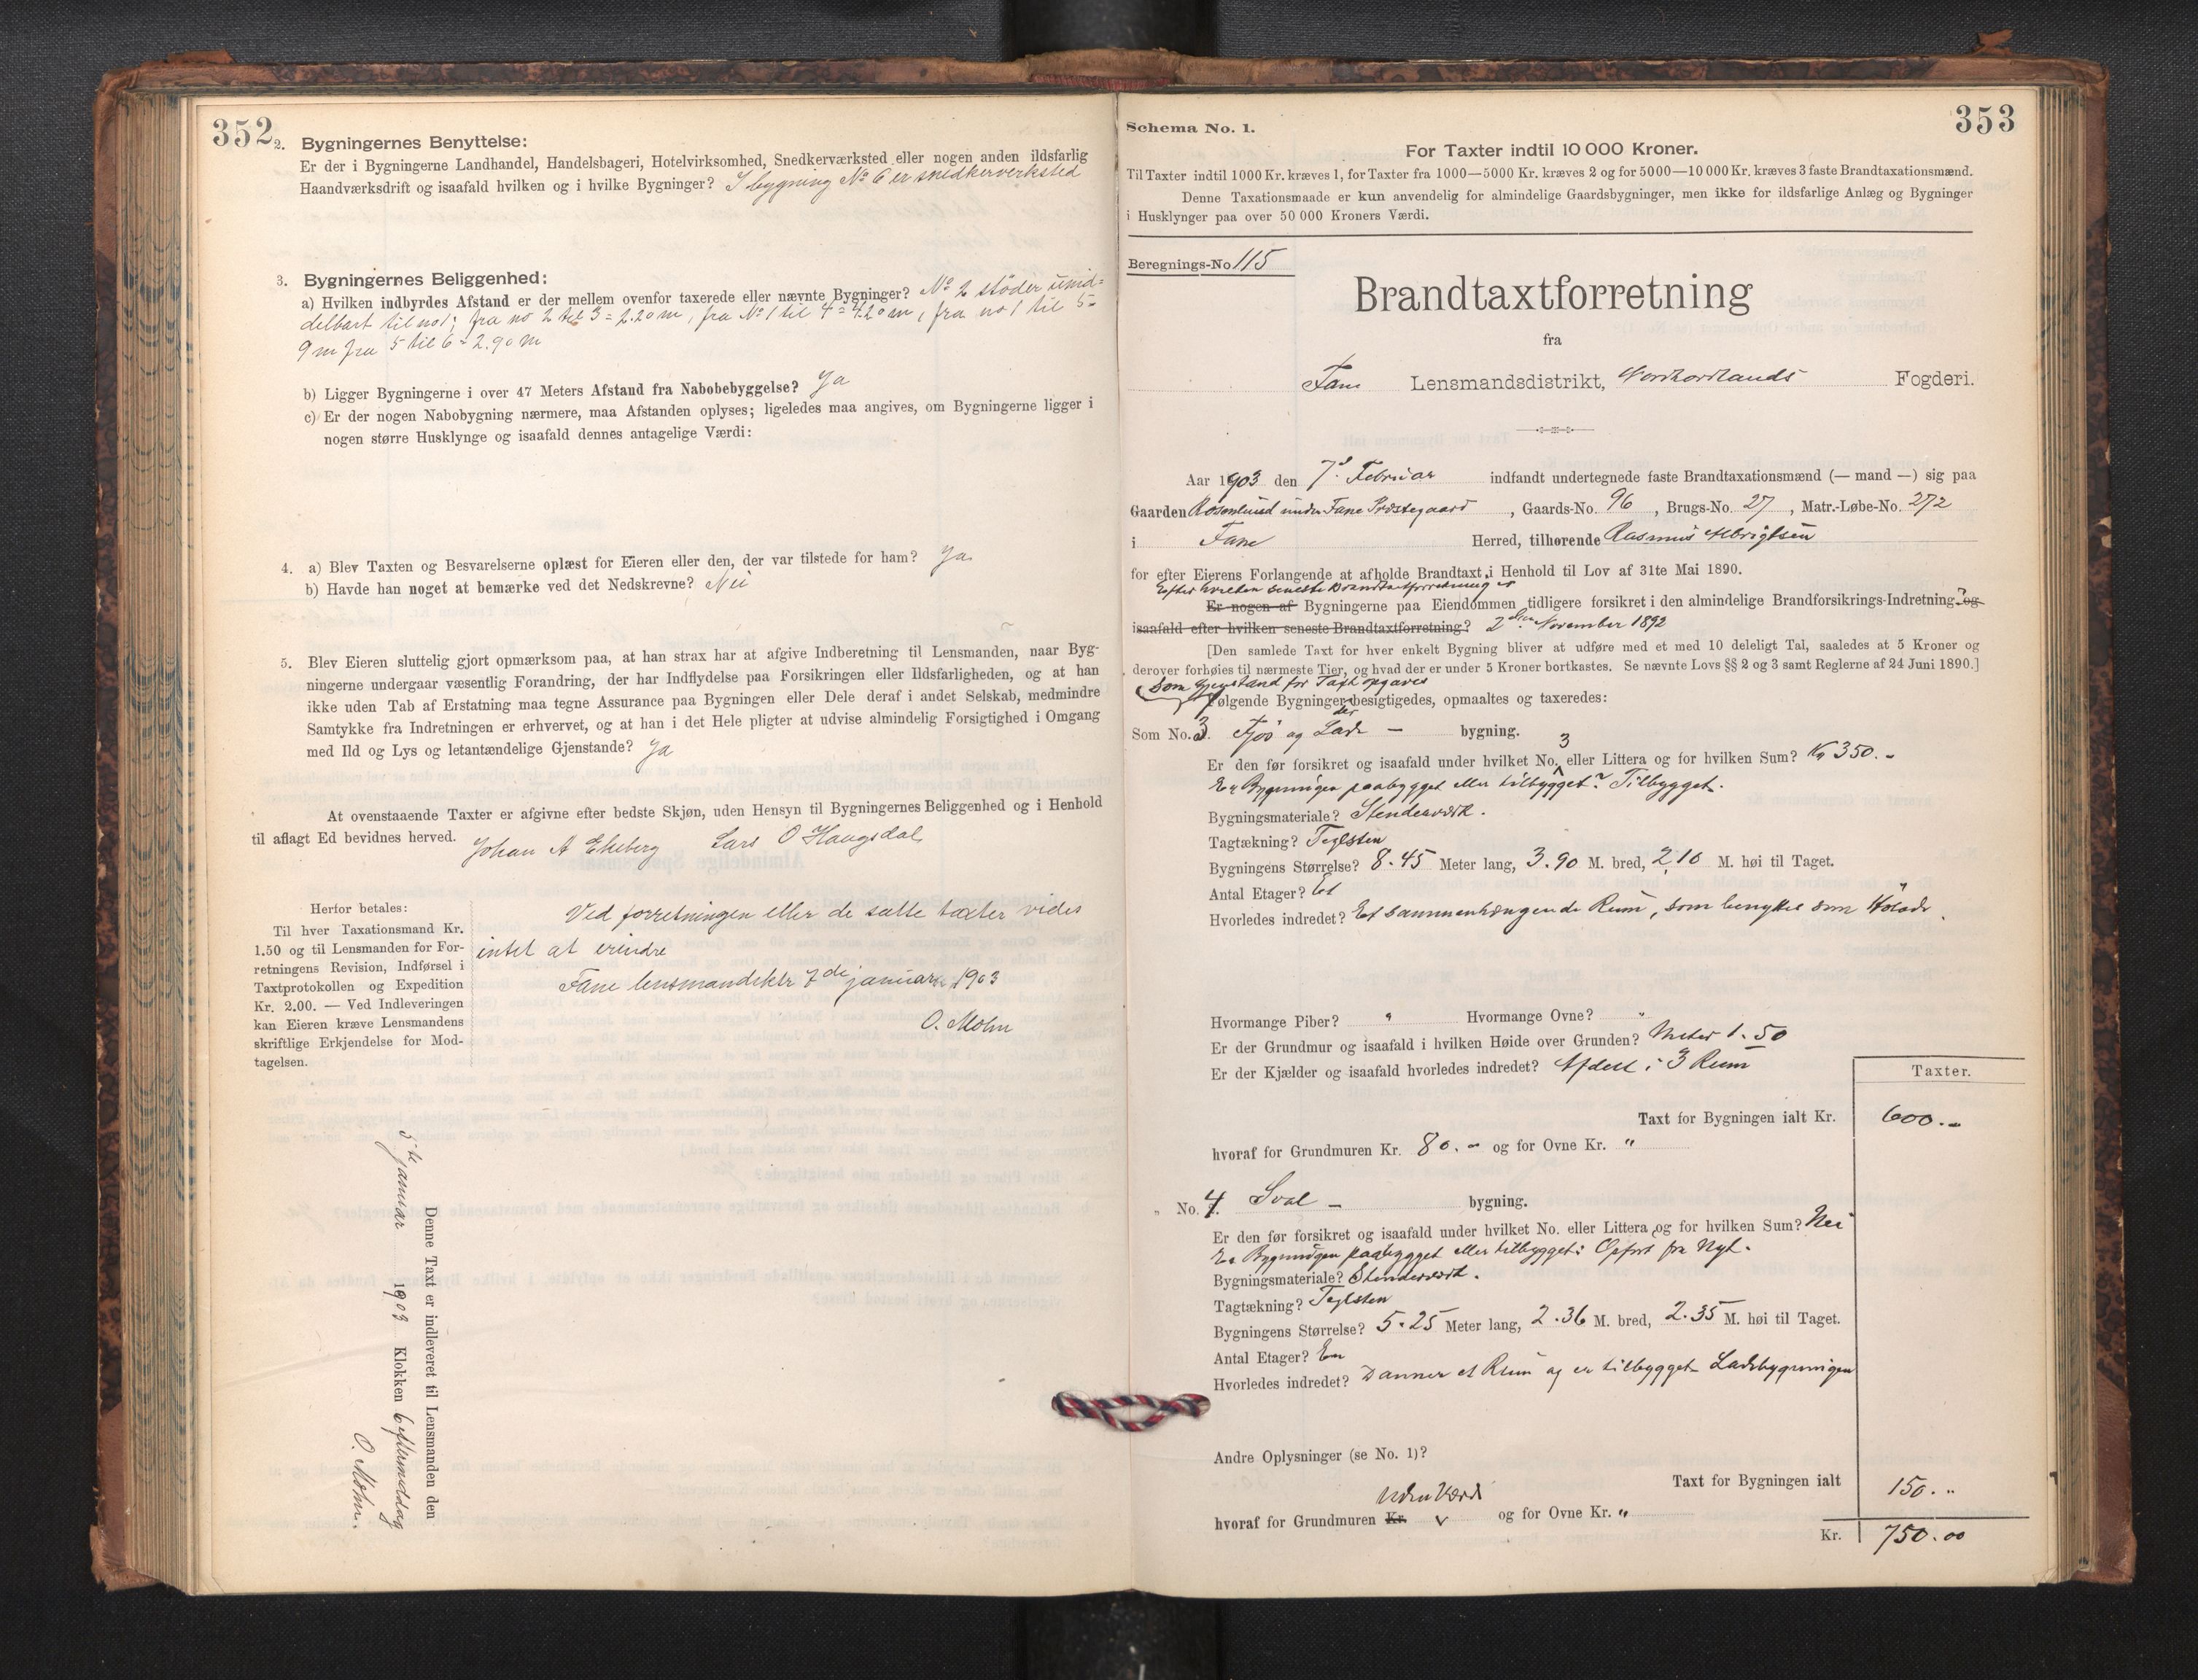 352
2. Bygningernes Benyttelse:
Er der i Bygningerne Landhandel, Handelsbageri, Hotelvirksomhed, Snedkerværksted eller nogen anden ildsfarlig
Haandværksdrift og isaafald hvilken og i hvilke Bygninger? I bygning No 6 er snedkerverksted
3. Bygningernes Beliggenhed:
a) Hvilken indbyrdes Afstand er der mellem ovenfor taxerede eller nævnte Bygninger? No 2 stöder umid-
delbart til no 1; fra no 2 til 3 = 2.20 m, fra No 1 til 4 = 4.20 m, fra no 1 til 5 =
9 m fra 5 til 6 = 2.90 m
b) Ligger Bygningerne i over 47 Meters Afstand fra Nabobebyggelse? Ja
c) Er der nogen Nabobygning nærmere, maa Afstanden oplyses; ligeledes maa angives, om Bygningerne ligger i
nogen større Husklynge og isaafald dennes antagelige Værdi:
4. a) Blev Taxten og Besvarelserne oplæst for Eieren eller den, der var tilstede for ham? Ja
b) Havde han noget at bemærke ved det Nedskrevne? Nei
5. Blev Eieren sluttelig gjort opmærksom paa, at han strax har at afgive Indberetning til Lensmanden, naar Byg-
ningerne undergaar væsentlig Forandring, der har Indflydelse paa Forsikringen eller Ildsfarligheden, og at han
ikke uden Tab af Erstatning maa tegne Assurance paa Bygningen eller Dele deraf i andet Selskab, medmindre
Samtykke fra Indretningen er erhvervet, og at han i det Hele pligter at udvise almindelig Forsigtighed i Omgang
med Ild og Lys og letantændelige Gjenstande? Ja
At ovenstaaende Taxter er afgivne efter bedste Skjøn, uden Hensyn til Bygningernes Beliggenhed og i Henhold
til aflagt Ed bevidnes herved. Johan A Ekeberg Lars O Haugsdal
Herfor betales:
Til hver Taxationsmand Kr.
1.50 og til Lensmanden for For-
retningens Revision, Indførsel i
Taxtprotokollen og Expedition
Kr. 2.00. — Ved Indleveringen
kan Eieren kræve Lensmandens
skriftlige Erkjendelse for Mod-
tagelsen.
Ved forretningen eller de satte taxter vides
intet at erindre
Fane lensmandsktr 7de januar 1903
O. Mohn
Denne Taxt er indleveret til Lensmanden den
5te januar 1903 Klokken 6 eftermiddag
O. Mohn.
353
Schema No. 1.
For Taxter indtil 10 000 Kroner.
Til Taxter indtil 1000 Kr. kræves 1, for Taxter fra 1000—5000 Kr. kræves 2 og for 5000—10 000 Kr. kræves 3 faste Brandtaxationsmænd.
Denne Taxationsmaade er kun anvendelig for almindelige Gaardsbygninger, men ikke for ildsfarlige Anlæg og Bygninger
i Husklynger paa over 50 000 Kroners Værdi.
Beregnings-No 115
Brandtaxtforretning
fra
Fane Lensmandsdistrikt, Nordhordlands Fogderi.
Aar 1903 den 7d Februar indfandt undertegnede faste Brandtaxationsmænd (— mand —) sig paa
Gaarden Rosenlund under Fane Præstegaard, Gaards-No. 96, Brugs-No. 27, Matr.-Løbe-No. 272
i Fane Herred, tilhørende Rasmus Albrigtsen
for efter Eierens Forlangende at afholde Brandtaxt i Henhold til Lov af 31te Mai 1890.
Efter hvilken seneste Brandtaxtforretning er
Er nogen af Bygningerne paa Eiendommen tidligere forsikret i den almindelige Brandforsikrings-Indretning? og
isaafald efter hvilken seneste Brandtaxtforretning? 2den November 1892
[Den samlede Taxt for hver enkelt Bygning bliver at udføre med et med 10 deleligt Tal, saaledes at 5 Kroner og
derover forhøies til nærmeste Tier, og hvad der er under 5 Kroner bortkastes. Se nævnte Lovs §§ 2 og 3 samt Reglerne af 24 Juni 1890.]
Som Gjenstand for Taxt opgaves
følgende Bygninger der besigtigedes, opmaaltes og taxeredes:
Som No. 3. Fjös og Lade - bygning.
Er den før forsikret og isaafald under hvilket No. 3 eller Littera og for hvilken Sum? Kr 350. -
Er Bygningen paabygget eller tilbygget? Tilbygget.
Bygningsmateriale? Stenderværk.
Tagtækning? Teglsten
Bygningens Størrelse? 8.45 Meter lang, 3.90 M. bred, 2.10 M. høi til Taget.
Antal Etager? Et
Hvorledes indredet? Et sammenhængende Rum, som benyttes som Hölade.
Hvormange Piber? " Hvormange Ovne? "
Er der Grundmur og isaafald i hvilken Høide over Grunden? Meter 1.50
Er der Kjælder og isaafald hvorledes indredet? Afdelt i 3 Rum
Taxter.
Taxt for Bygningen ialt Kr. 600.-
hvoraf for Grundmuren Kr. 80.- og for Ovne Kr. "
" No. 4. Sval - bygning.
Er den før forsikret og isaafald under hvilket No. eller Littera og for hvilken Sum? Nei
Er Bygningen paabygget eller tilbygget: Opført fra Nyt.
Bygningsmateriale? Stenderværk.
Tagtækning? Teglsten
Bygningens Størrelse? 5.25 Meter lang, 2.36 M. bred, 2.35 M. høi til Taget.
Antal Etager? En
Hvorledes indredet? Danner et Rum og er tilbygget Ladebygningen
Andre Oplysninger (se No. 1)?
Taxt for Bygningen ialt 150. "
Uden Værdi
hvoraf for Grundmuren Kr. og for Ovne Kr. "
Kr. 750.00